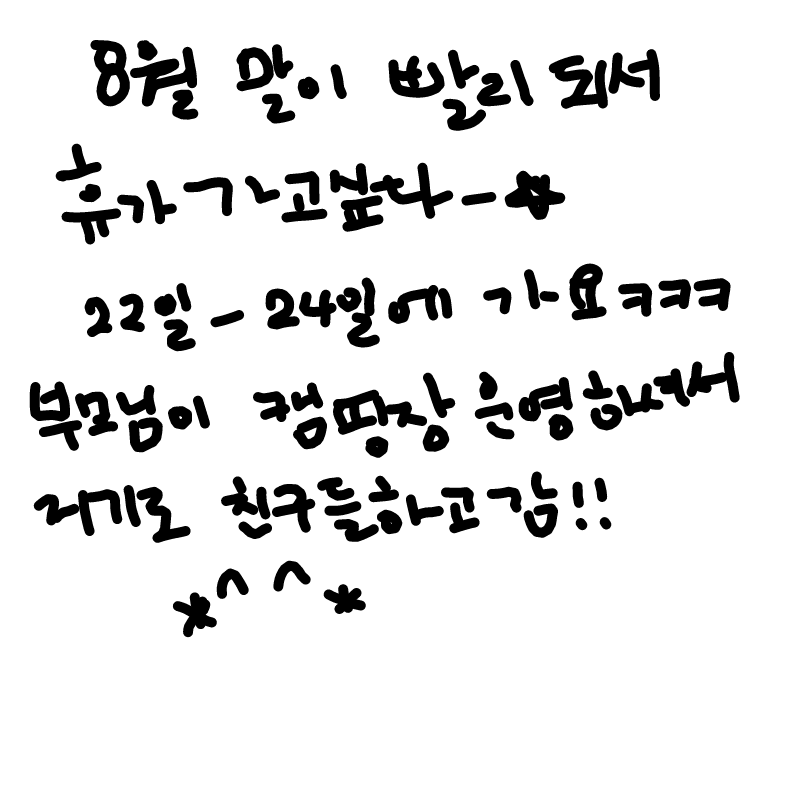 8월 말이 빨리 되서
휴가 가고싶다-☆
22일-24일에 가요ㅋㅋㅋ
부모님이 캠핑장 운영하셔서
거기로 친구들하고감!!
*^^*